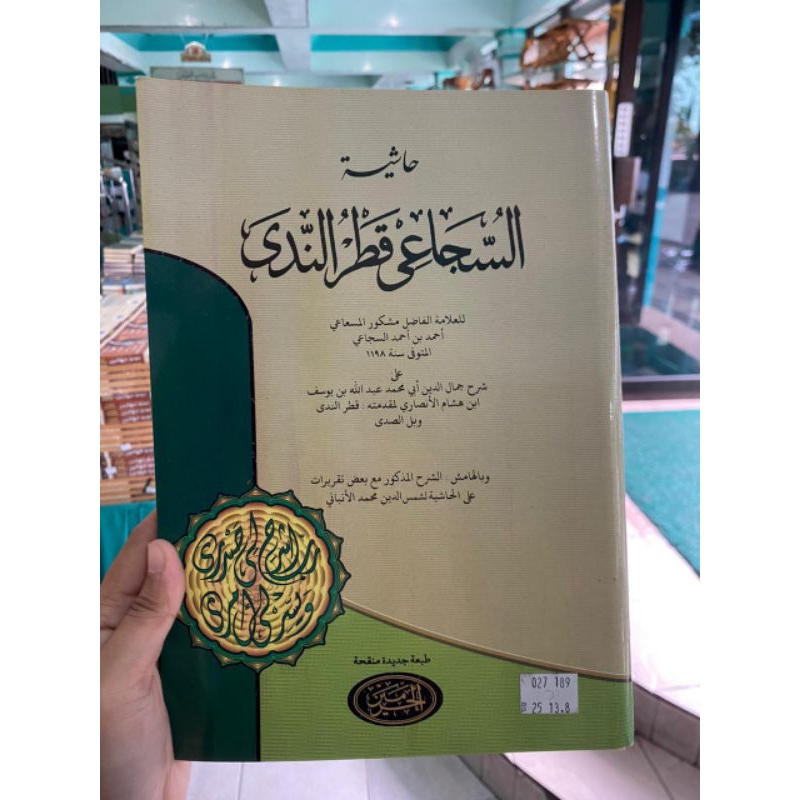 حاشية
السُّجَاعِي قَطْرُ النَّدَى
للعلامة الفاضل مشكور المسعاعي
أحمد بن أحمد السجاعي
المتوفى سنة ١١٩٨
على
شرح جمال الدين أبي محمد عبد الله بن يوسف
ابن هشام الأنصاري لمقدمته : قطر الندى
وبل الصدى
وبالهامش : الشرح المذكور مع بعض تقريرات
على الحاشية لشمس الدين محمد الأنبابي
رب اشرح لي صدري
ويسر لي أمري
طبعة جديدة منقحة
الحرمين
027 189
25 13.8